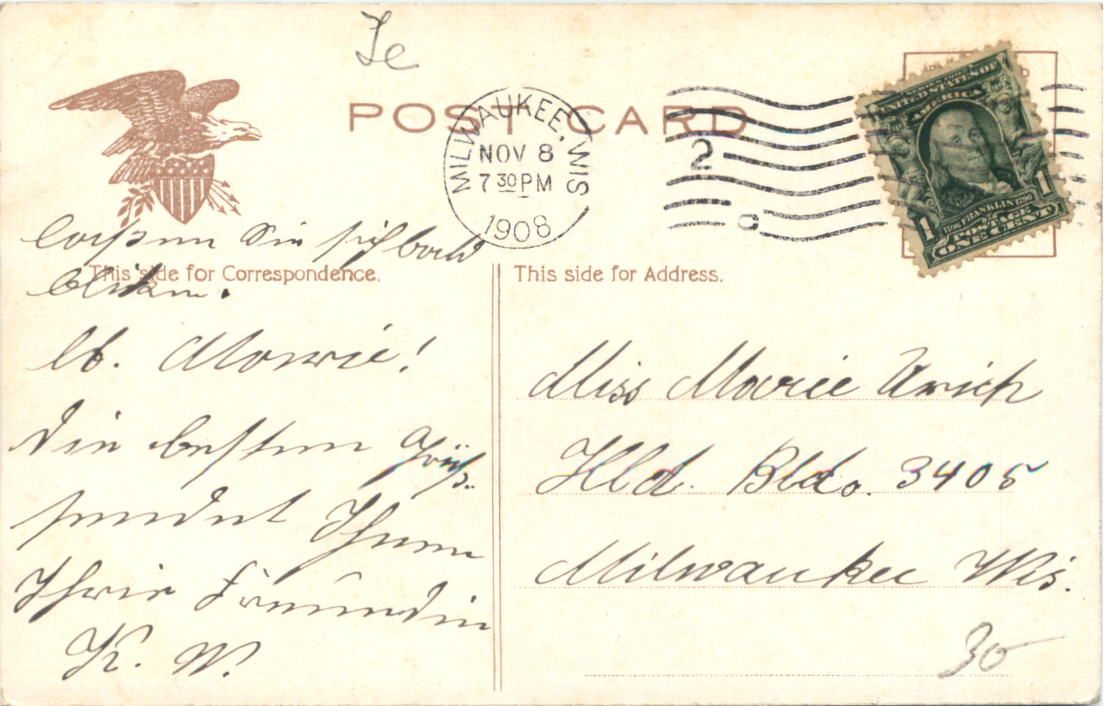 Te
POST CARD
MILWAUKEE, WIS
NOV 8
7 30 PM
1908
UNITED STATES OF
AMERICA
1790 FRANKLIN 1790
POSTAGE
1 ONE CENT 1
This side for Correspondence.
This side for Address.
lassen Sie sich bald
blicken.
lb. Marie!
Die besten Grüße
sendet Ihnen
Ihre Freundin
K. W.
Miss Marie Urich
Hld. Bldo. 3405
Milwaukee Wis.
30